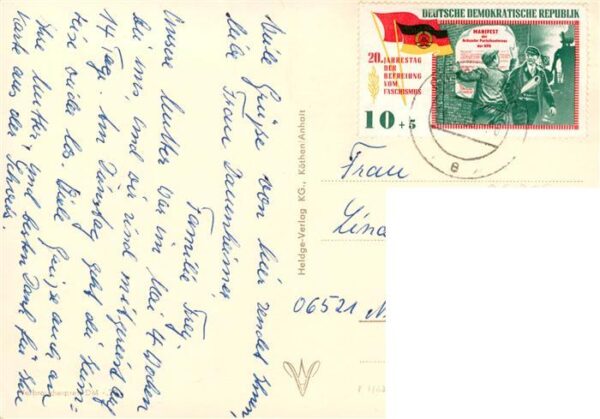 Viele Grüße von hier sendet Ihnen,
liebe Frau Daumheimer
Familie Frey.
Unsere Mutter war im Mai 4 Wochen
bei uns und wir sind mitgereist auf
14 Tag. Am Dienstag geht die Heim-
reis wieder los. Viele Grüße auch an
Ihre Mutter, und besten Dank für die
Karte aus der Schweiz.
DEUTSCHE DEMOKRATISCHE REPUBLIK
MANIFEST
der Brüsseler Parteikonferenz
der KPD
20. JAHRESTAG
DER
BEFREIUNG
VOM
FASCHISMUS
10+5
a
Frau
Lina
06521
Heldge-Verlag KG., Köthen/Anhalt